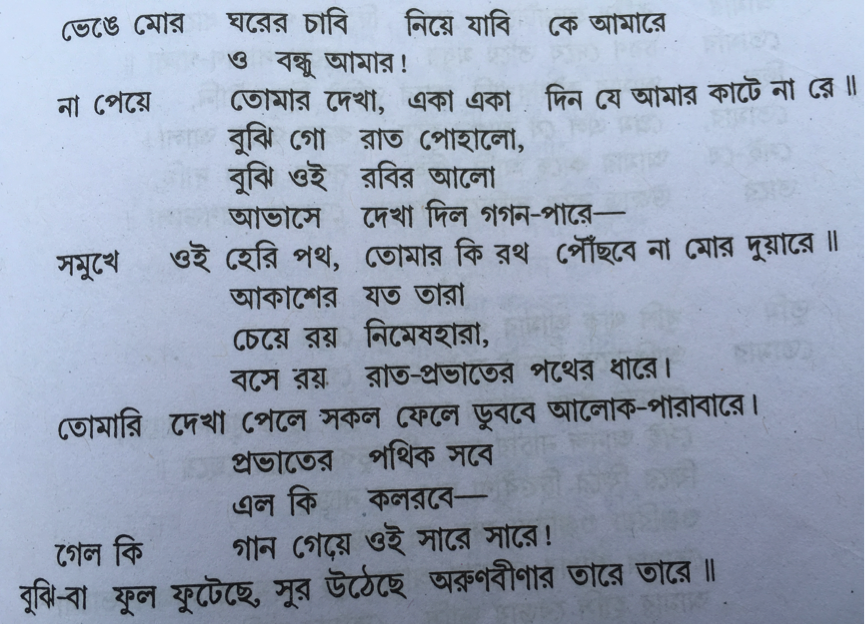 ভেঙে মোর ঘরের চাবি নিয়ে যাবি কে আমারে
ও বন্ধু আমার!
না পেয়ে তোমার দেখা, একা একা দিন যে আমার কাটে না রে॥
বুঝি গো রাত পোহালো,
বুঝি ওই রবির আলো
আভাসে দেখা দিল গগন-পারে—
সমুখে ওই হেরি পথ, তোমার কি রথ পৌঁছবে না মোর দুয়ারে॥
আকাশের যত তারা
চেয়ে রয় নিমেষহারা,
বসে রয় রাত-প্রভাতের পথের ধারে।
তোমারি দেখা পেলে সকল ফেলে ডুববে আলোক-পারাবারে।
প্রভাতের পথিক সবে
এল কি কলরবে—
গেল কি গান গেয়ে ওই সারে সারে!
বুঝি-বা ফুল ফুটেছে, সুর উঠেছে অরুণবীণার তারে তারে॥